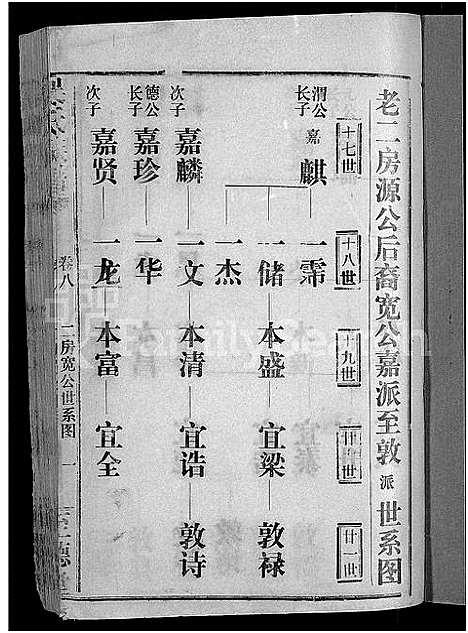 老二房源公后裔宽公嘉派至敦派世系图
十七世
十八世
十九世
廿世
廿一世
渭公长子
嘉麒
一霈
一储
本盛
宜梁
敦禄
一杰
次子
嘉麟
一文
本清
宜诰
敦诗
德公长子
嘉珍
一华
次子
嘉贤
一龙
本富
宜全
卷八
二房宽公世系图
一
FamilySearch